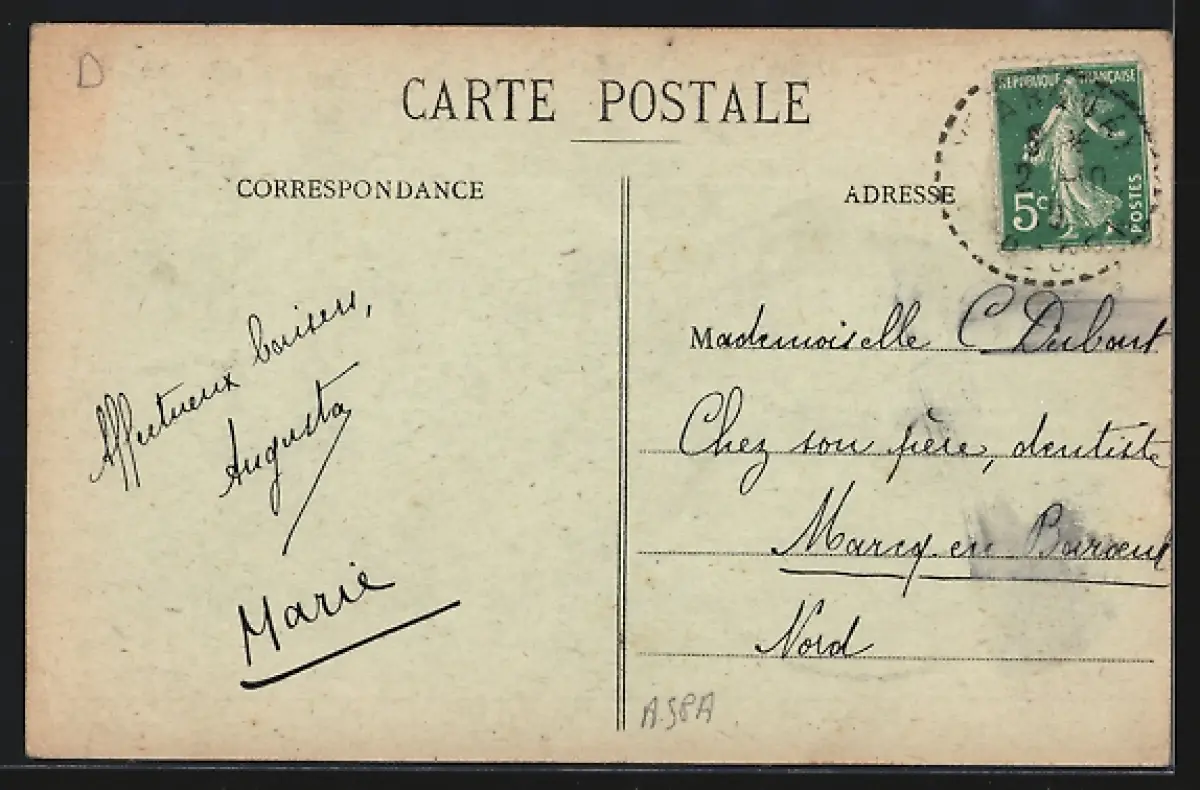 D
CARTE POSTALE
RÉPUBLIQUE FRANÇAISE
5c
POSTES
CORRESPONDANCE
ADRESSE
Affectueux baisers,
Augusta
Marie
Mademoiselle C Dubout
Chez son père, dentiste
Marcq en Baroeul
Nord
A.58A